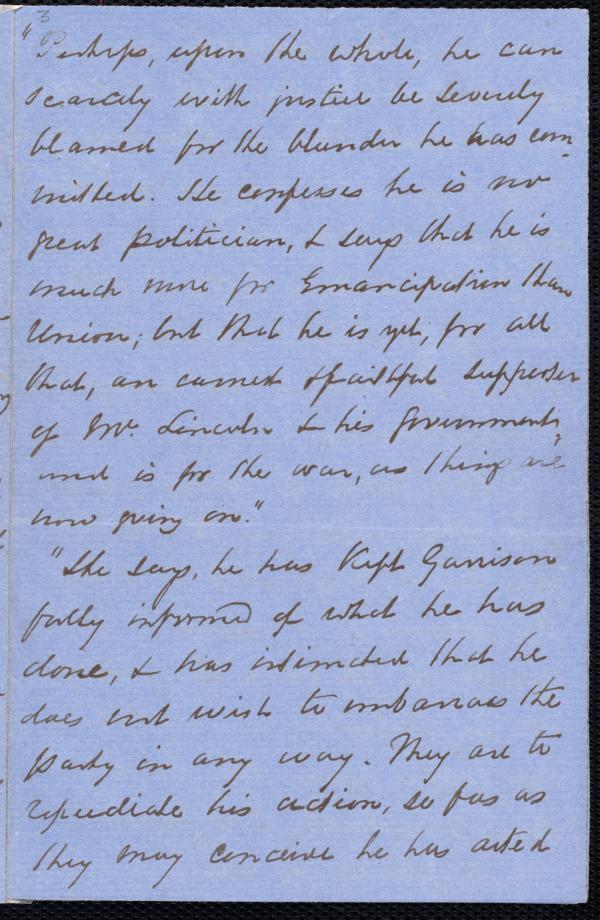 3
"Perhaps, upon the whole, he can
scarcely with justice be severely
blamed for the blunder he has com-
mitted. He confesses he is no
great politician, & says that he is
much more for Emancipation than
Union; but that he is yet, for all
that, an earnest & faithful supporter
of Mr. Lincoln & his government
and is for the war, as things are
now going on."
"He says, he has kept Garrison
fully informed of what he has
done, & has intimated that he
does not wish to embarrass the
party in any way. They are to
repudiate his action, so far as
they may conceive he has acted